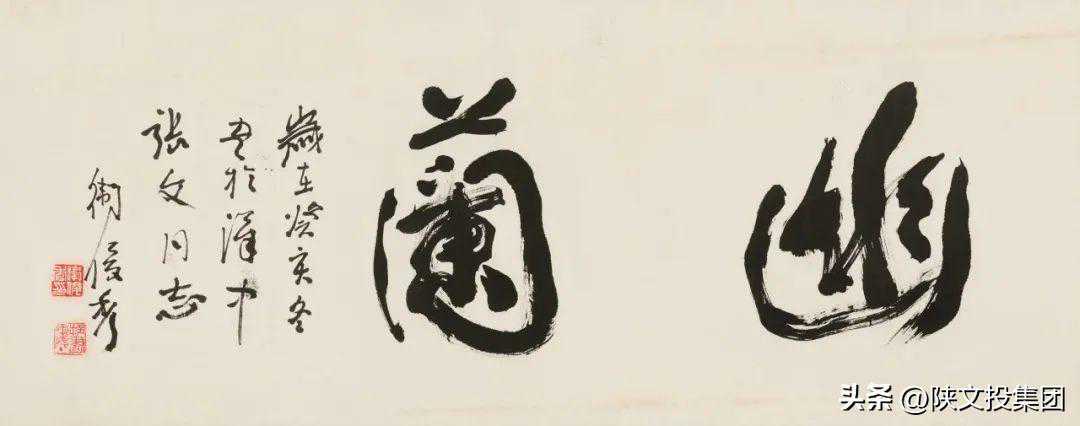 幽蘭
歲在癸亥冬
書於漢中
張文同志
衛俊秀
头条 @陕文投集团